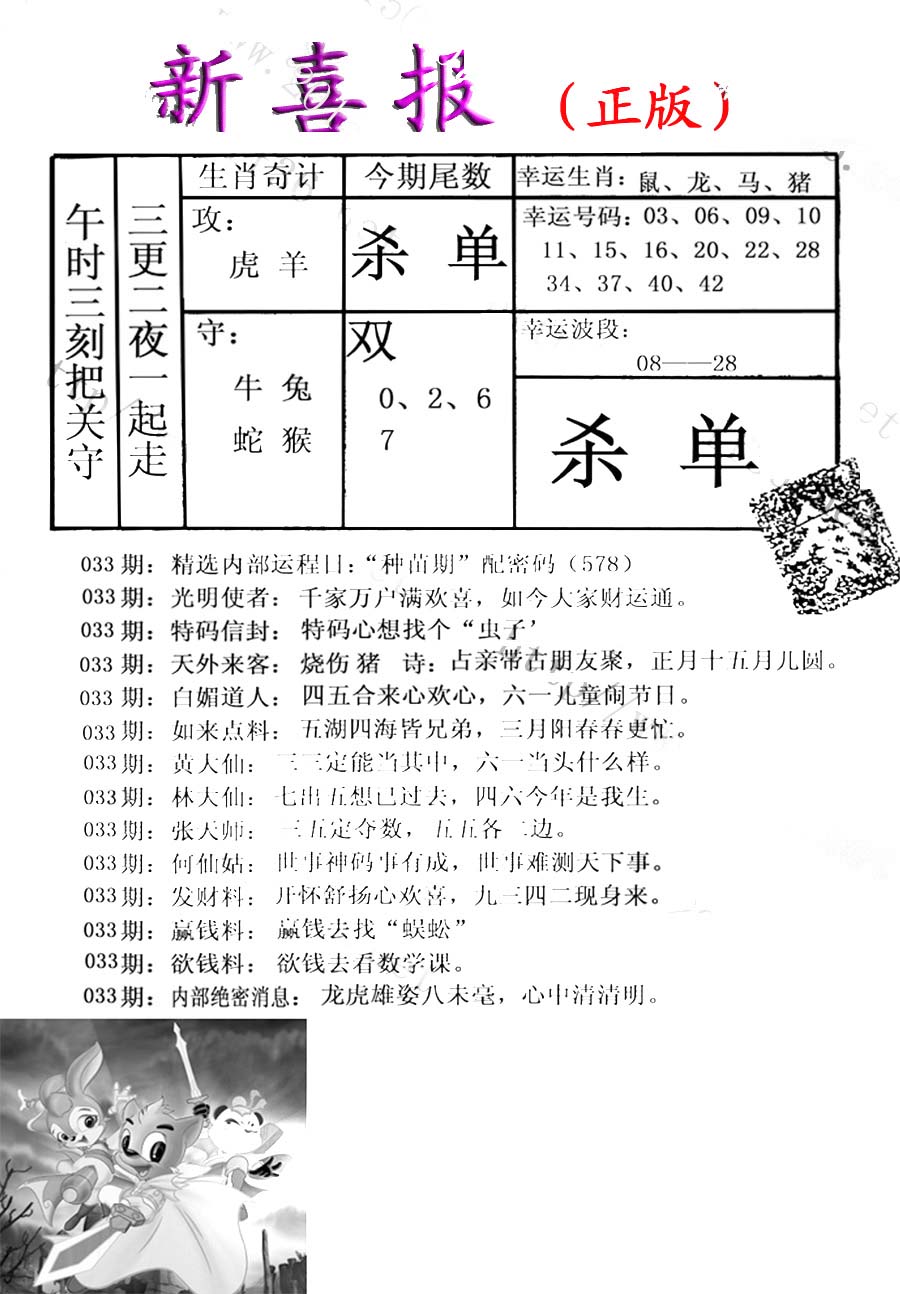 新喜报（正版）
午时三刻把关守
三更二夜一起走
生肖奇计
攻：
虎 羊
守：
牛 兔
蛇 猴
今期尾数
杀 单
双
0、2、6
7
幸运生肖：鼠、龙、马、猪
幸运号码：03、06、09、10
11、15、16、20、22、28
34、37、40、42
幸运波段：
08——28
杀 单
033期：精选内部运程日：“种苗期”配密码（578）
033期：光明使者：千家万户满欢喜，如今大家财运通。
033期：特码信封：特码心想找个“虫子’
033期：天外来客：烧伤猪 诗：占亲带古朋友聚，正月十五月儿圆。
033期：白媚道人：四五合来心欢心，六一儿童闹节日。
033期：如来点料：五湖四海皆兄弟，三月阳春春更忙。
033期：黄大仙：三三定能当其中，六一当头什么样。
033期：林大仙：七出五想已过去，四六今年是我生。
033期：张天师：三五定夺数，五五各二边。
033期：何仙姑：世事神码事有成，世事难测天下事。
033期：发财料：开怀舒扬心欢喜，九三四二现身来。
033期：赢钱料：赢钱去找“蜈蚣”
033期：欲钱料：欲钱去看数学课。
033期：内部绝密消息：龙虎雄姿八未毫，心中清清明。